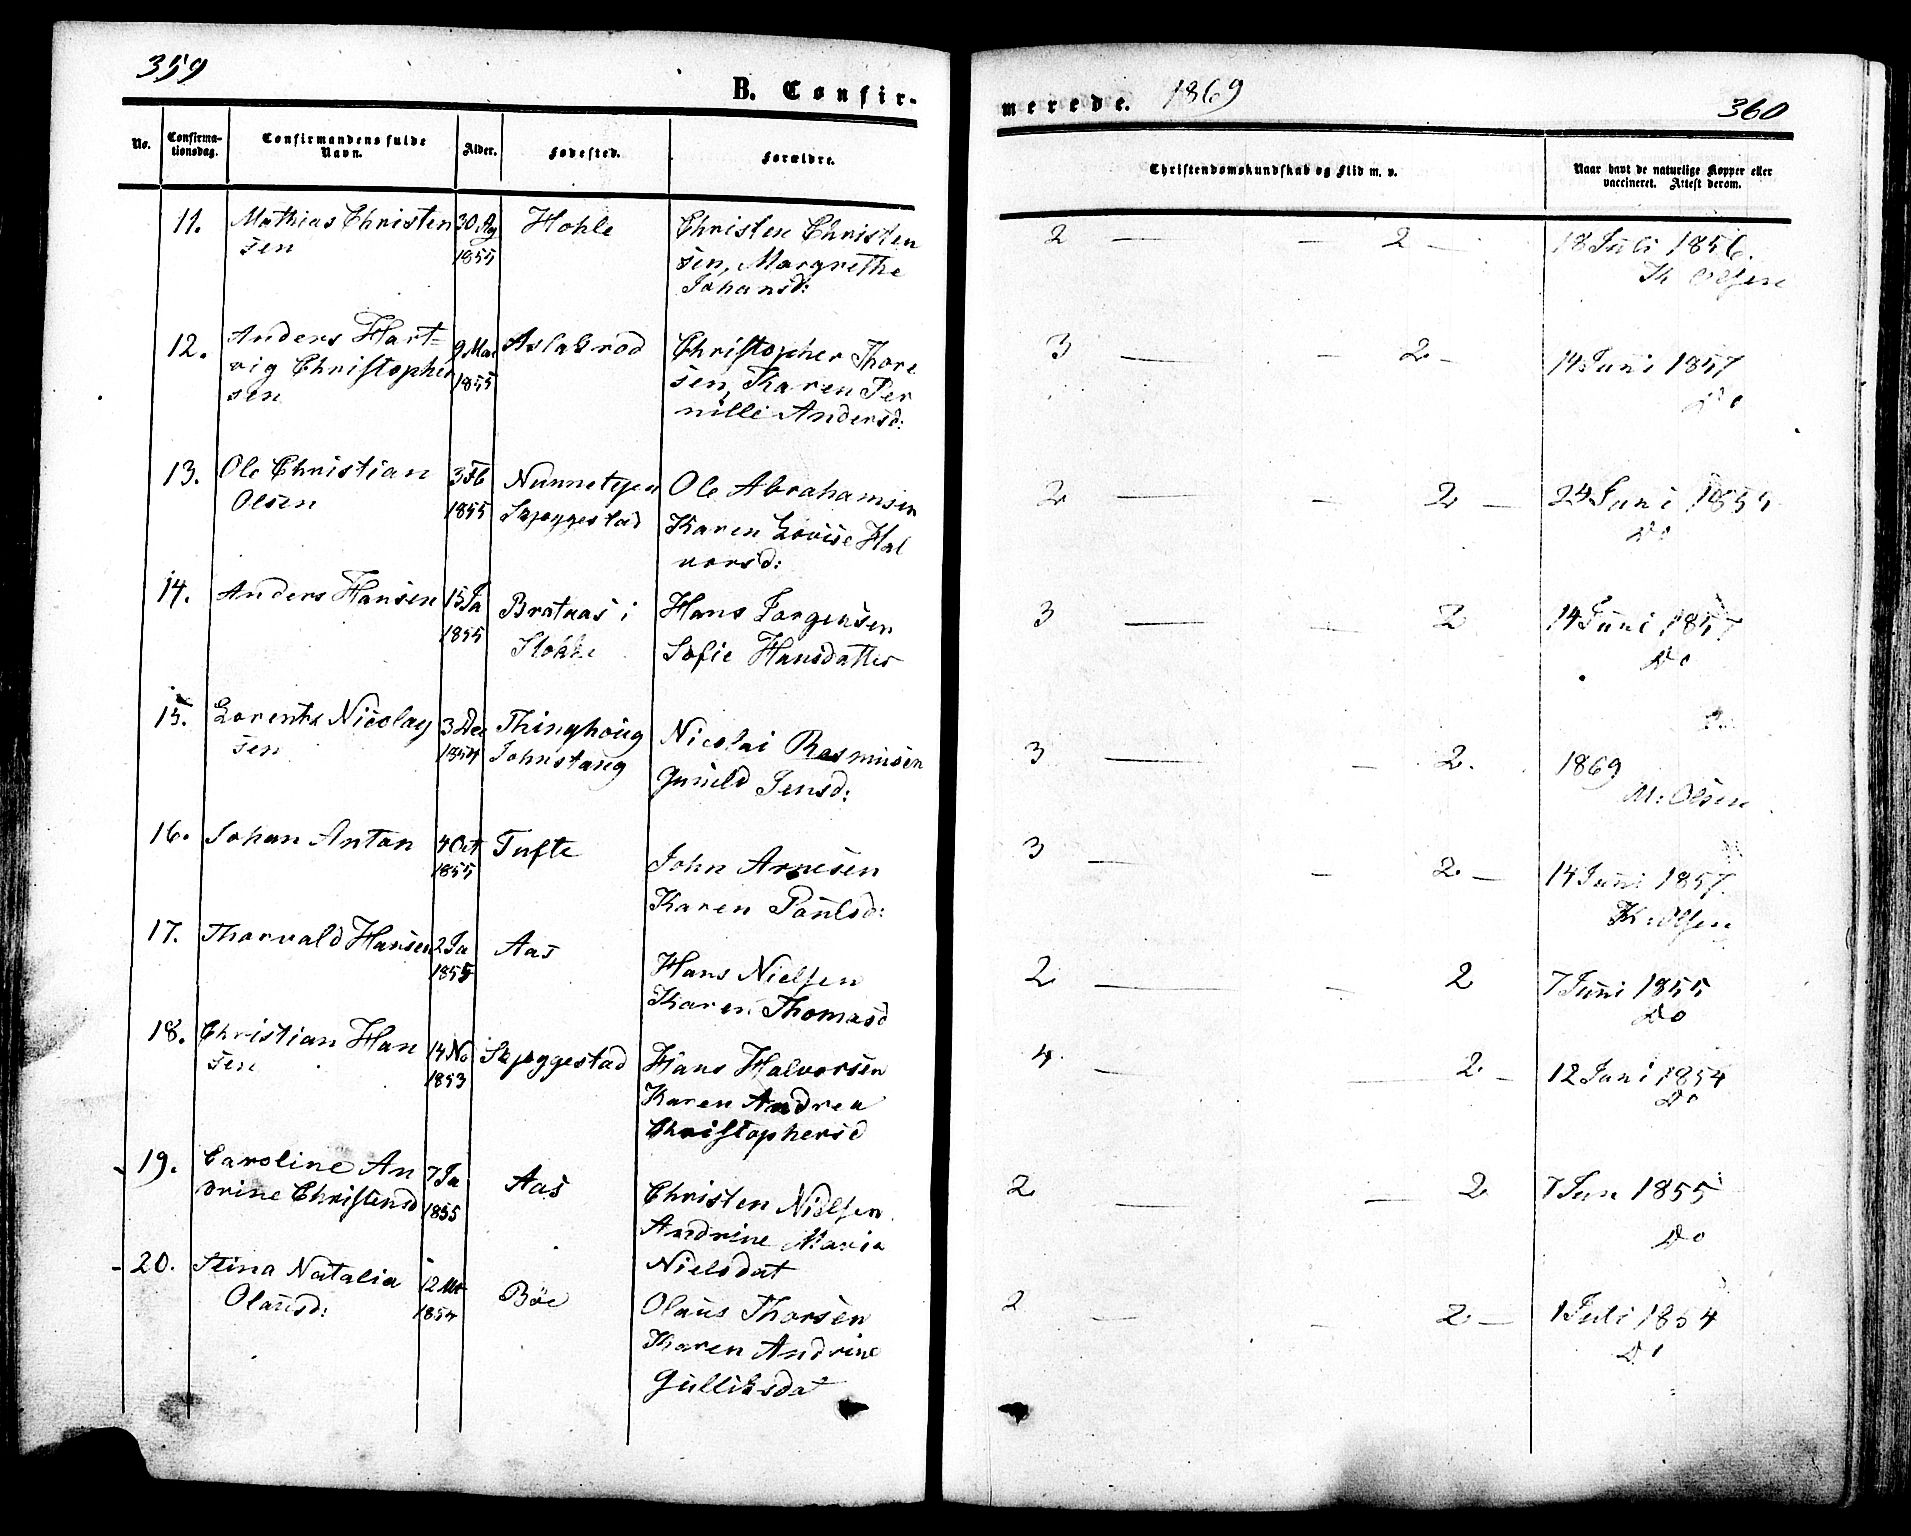 359
B. Confir-
No.
Confirma-
tionsdag.
Confirmandens fulde
Navn.
Alder.
Fødested.
Forældre.
11.
Mathias Christen
sen
30 Ag
1855
Hohle
Christen Christen
sen, Margrethe
Johansd:
12.
Anders Hart-
vig Christopher
sen
9 Mai
1855
Aslakrød
Christopher Thore
sen, Karen Per
nille Andersd:
13.
Ole Christian
Olsen
3 Fb
1855
Nunnetejen
Skjeggestad
Ole Abrahamsen
Karen Lovise Hal
vorsd:
14.
Anders Hansen
15 Ja
1855
Brataas i
Stokke
Hans Jørgensen
Sofie Hansdatter
15.
Lorents Nicolay
sen
3 Dec
1854
Thinghoug
Johnstang
Nicolai Rasmusen
Gunild Jensd:
16.
Johan Anton
4 Oct
1855
Tufte
John Arnesen
Karen Poulsd:
17.
Thorvald Hansen
2 Ja
1855
Aas
Hans Nielsen
Karen Thomasd
18.
Christian Han
sen
14 No
1853
Skjeggestad
Hans Halvorsen
Karen Andrea
Christophersd
19.
Caroline An
drine Christensd
7 Ja
1855
Aas
Christen Nielsen
Andrine Maria
Nielsdat
20.
Stina Natalia
Olausd:
12
1854
Bøe
Olaus Thorsen
Karen Andrine
Gulliksdat
merede. 1869
360
Christendomskundskab og Flid m. v.
Naar havt de naturlige Kopper eller
vaccineret. Attest derom.
2 — – 2 –
18 Juli 1856.
Th Olsen
3 — – 2 –
14 Juni 1857
Do
2 — – 2 –
24 Juni 1855
Do
3 — – 2
14 Juni 1857
Do
3 — – 2.
1869
M: Olsen
3 — – 2 –
14 Juni 1857.
Th: Olsen
2 — – 2
7 Juni 1855
Do
4 — – 2 –
12 Juni 1854
Do
2 — – 2
7 Jun 1855
Do
2 — – 2 –
1 Juli 1854
Do